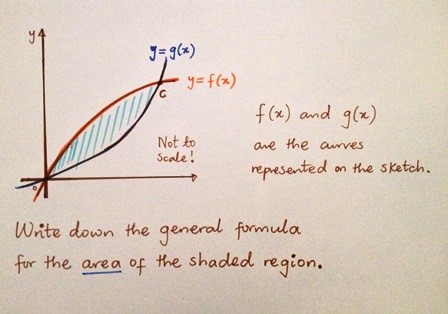 y
y=g(x)
y=f(x)
C
Not to
scale!
o
x
f(x) and g(x)
are the curves
represented on the sketch.
Write down the general formula
for the area of the shaded region.